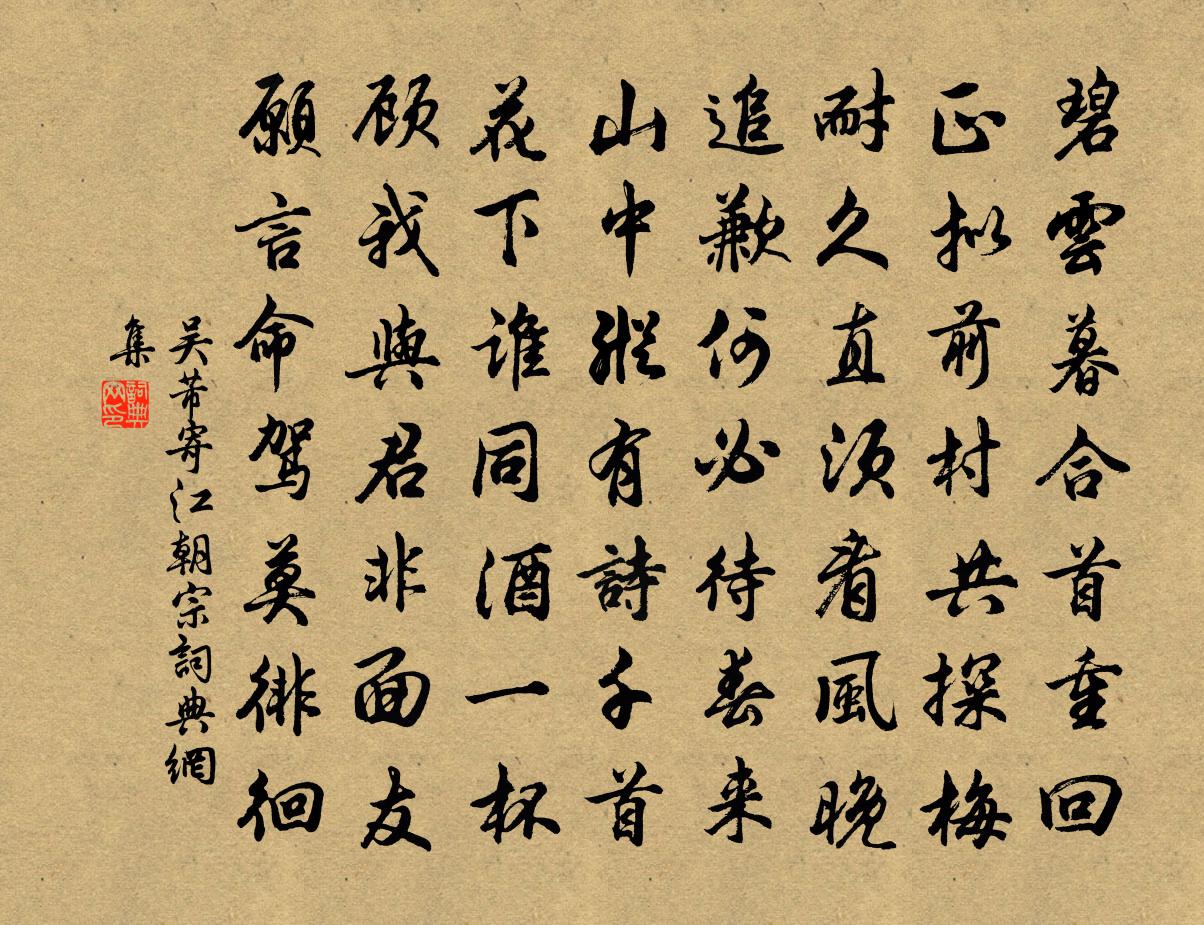 碧雲暮合首重回
正拟前村共探梅
耐久直须看風晚
追歉何必待春来
山中纵有詩千首
花下谁同酒一杯
顾我與君非面友
願言命驾莫徘徊
吴芾寄江朝宗詞典網
集
詞典
网印